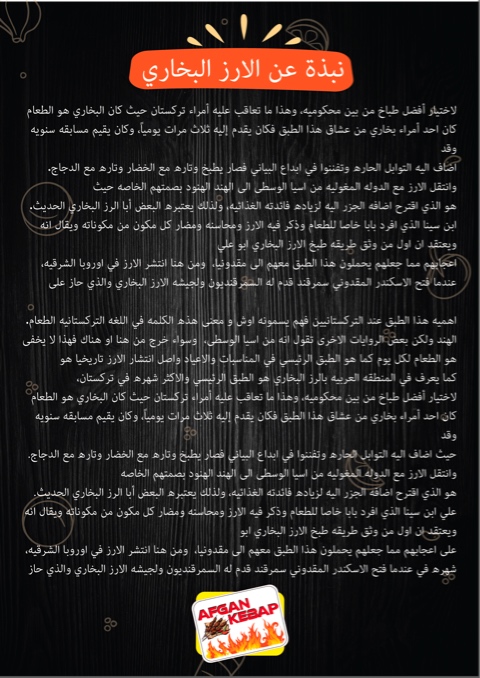 نبذة عن الارز البخاري
لاختيار أفضل طباخ من بين محكوميه، وهذا ما تعاقب عليه أمراء تركستان حيث كان البخاري هو الطعام
كان احد أمراء بخاري من عشاق هذا الطبق فكان يقدم إليه ثلاث مرات يومياً، وكان يقيم مسابقه سنويه
وقد
اضاف اليه التوابل الحاره وتفننوا في ابداع البياني فصار يطبخ وتاره مع الخضار وتاره مع الدجاج.
وانتقل الارز مع الدوله المغوليه من اسيا الوسطى الى الهند الهنود بصمتهم الخاصه حيث
هو الذي اقترح اضافه الجزر اليه لزياده فائدته الغذائيه، ولذلك يعتبره البعض أبا الرز البخاري الحديث.
ابن سينا الذي افرد بابا خاصا للطعام وذكر فيه الارز ومحاسنه ومضار كل مكون من مكوناته ويقال انه
ويعتقد ان اول من وثق طريقه طبخ الارز البخاري ابو علي
اعجابهم مما جعلهم يحملون هذا الطبق معهم الى مقدونيا، ومن هنا انتشر الارز في اوروبا الشرقيه،
عندما فتح الاسكندر المقدوني سمرقند قدم له السمرقنديون ولجيشه الارز البخاري والذي حاز على
اهميه هذا الطبق عند التركستانيين فهم يسمونه اوش و معنى هذه الكلمه في اللغه التركستانيه الطعام.
الهند ولكن بعض الروايات الاخرى تقول انه من اسيا الوسطى، وسواء خرج من هنا او هناك فهذا لا يخفى
هو الطعام لكل يوم كما هو الطبق الرئيسي في المناسبات والاعياد واصل انتشار الارز تاريخيا هو
كما يعرف في المنطقه العربيه بالرز البخاري هو الطبق الرئيسي والاكثر شهره في تركستان،
لاختيار أفضل طباخ من بين محكوميه، وهذا ما تعاقب عليه أمراء تركستان حيث كان البخاري هو الطعام
كان احد أمراء بخاري من عشاق هذا الطبق فكان يقدم إليه ثلاث مرات يومياً، وكان يقيم مسابقه سنويه
وقد
حيث اضاف اليه التوابل الحاره وتفننوا في ابداع البياني فصار يطبخ وتاره مع الخضار وتاره مع الدجاج.
وانتقل الارز مع الدوله المغوليه من اسيا الوسطى الى الهند الهنود بصمتهم الخاصه
هو الذي اقترح اضافه الجزر اليه لزياده فائدته الغذائيه، ولذلك يعتبره البعض أبا الرز البخاري الحديث.
علي ابن سينا الذي افرد بابا خاصا للطعام وذكر فيه الارز ومحاسنه ومضار كل مكون من مكوناته ويقال انه
ويعتقد ان اول من وثق طريقه طبخ الارز البخاري ابو
على اعجابهم مما جعلهم يحملون هذا الطبق معهم الى مقدونيا، ومن هنا انتشر الارز في اوروبا الشرقيه،
شهره في عندما فتح الاسكندر المقدوني سمرقند قدم له السمرقنديون ولجيشه الارز البخاري والذي حاز
AFGAN
KEBAP